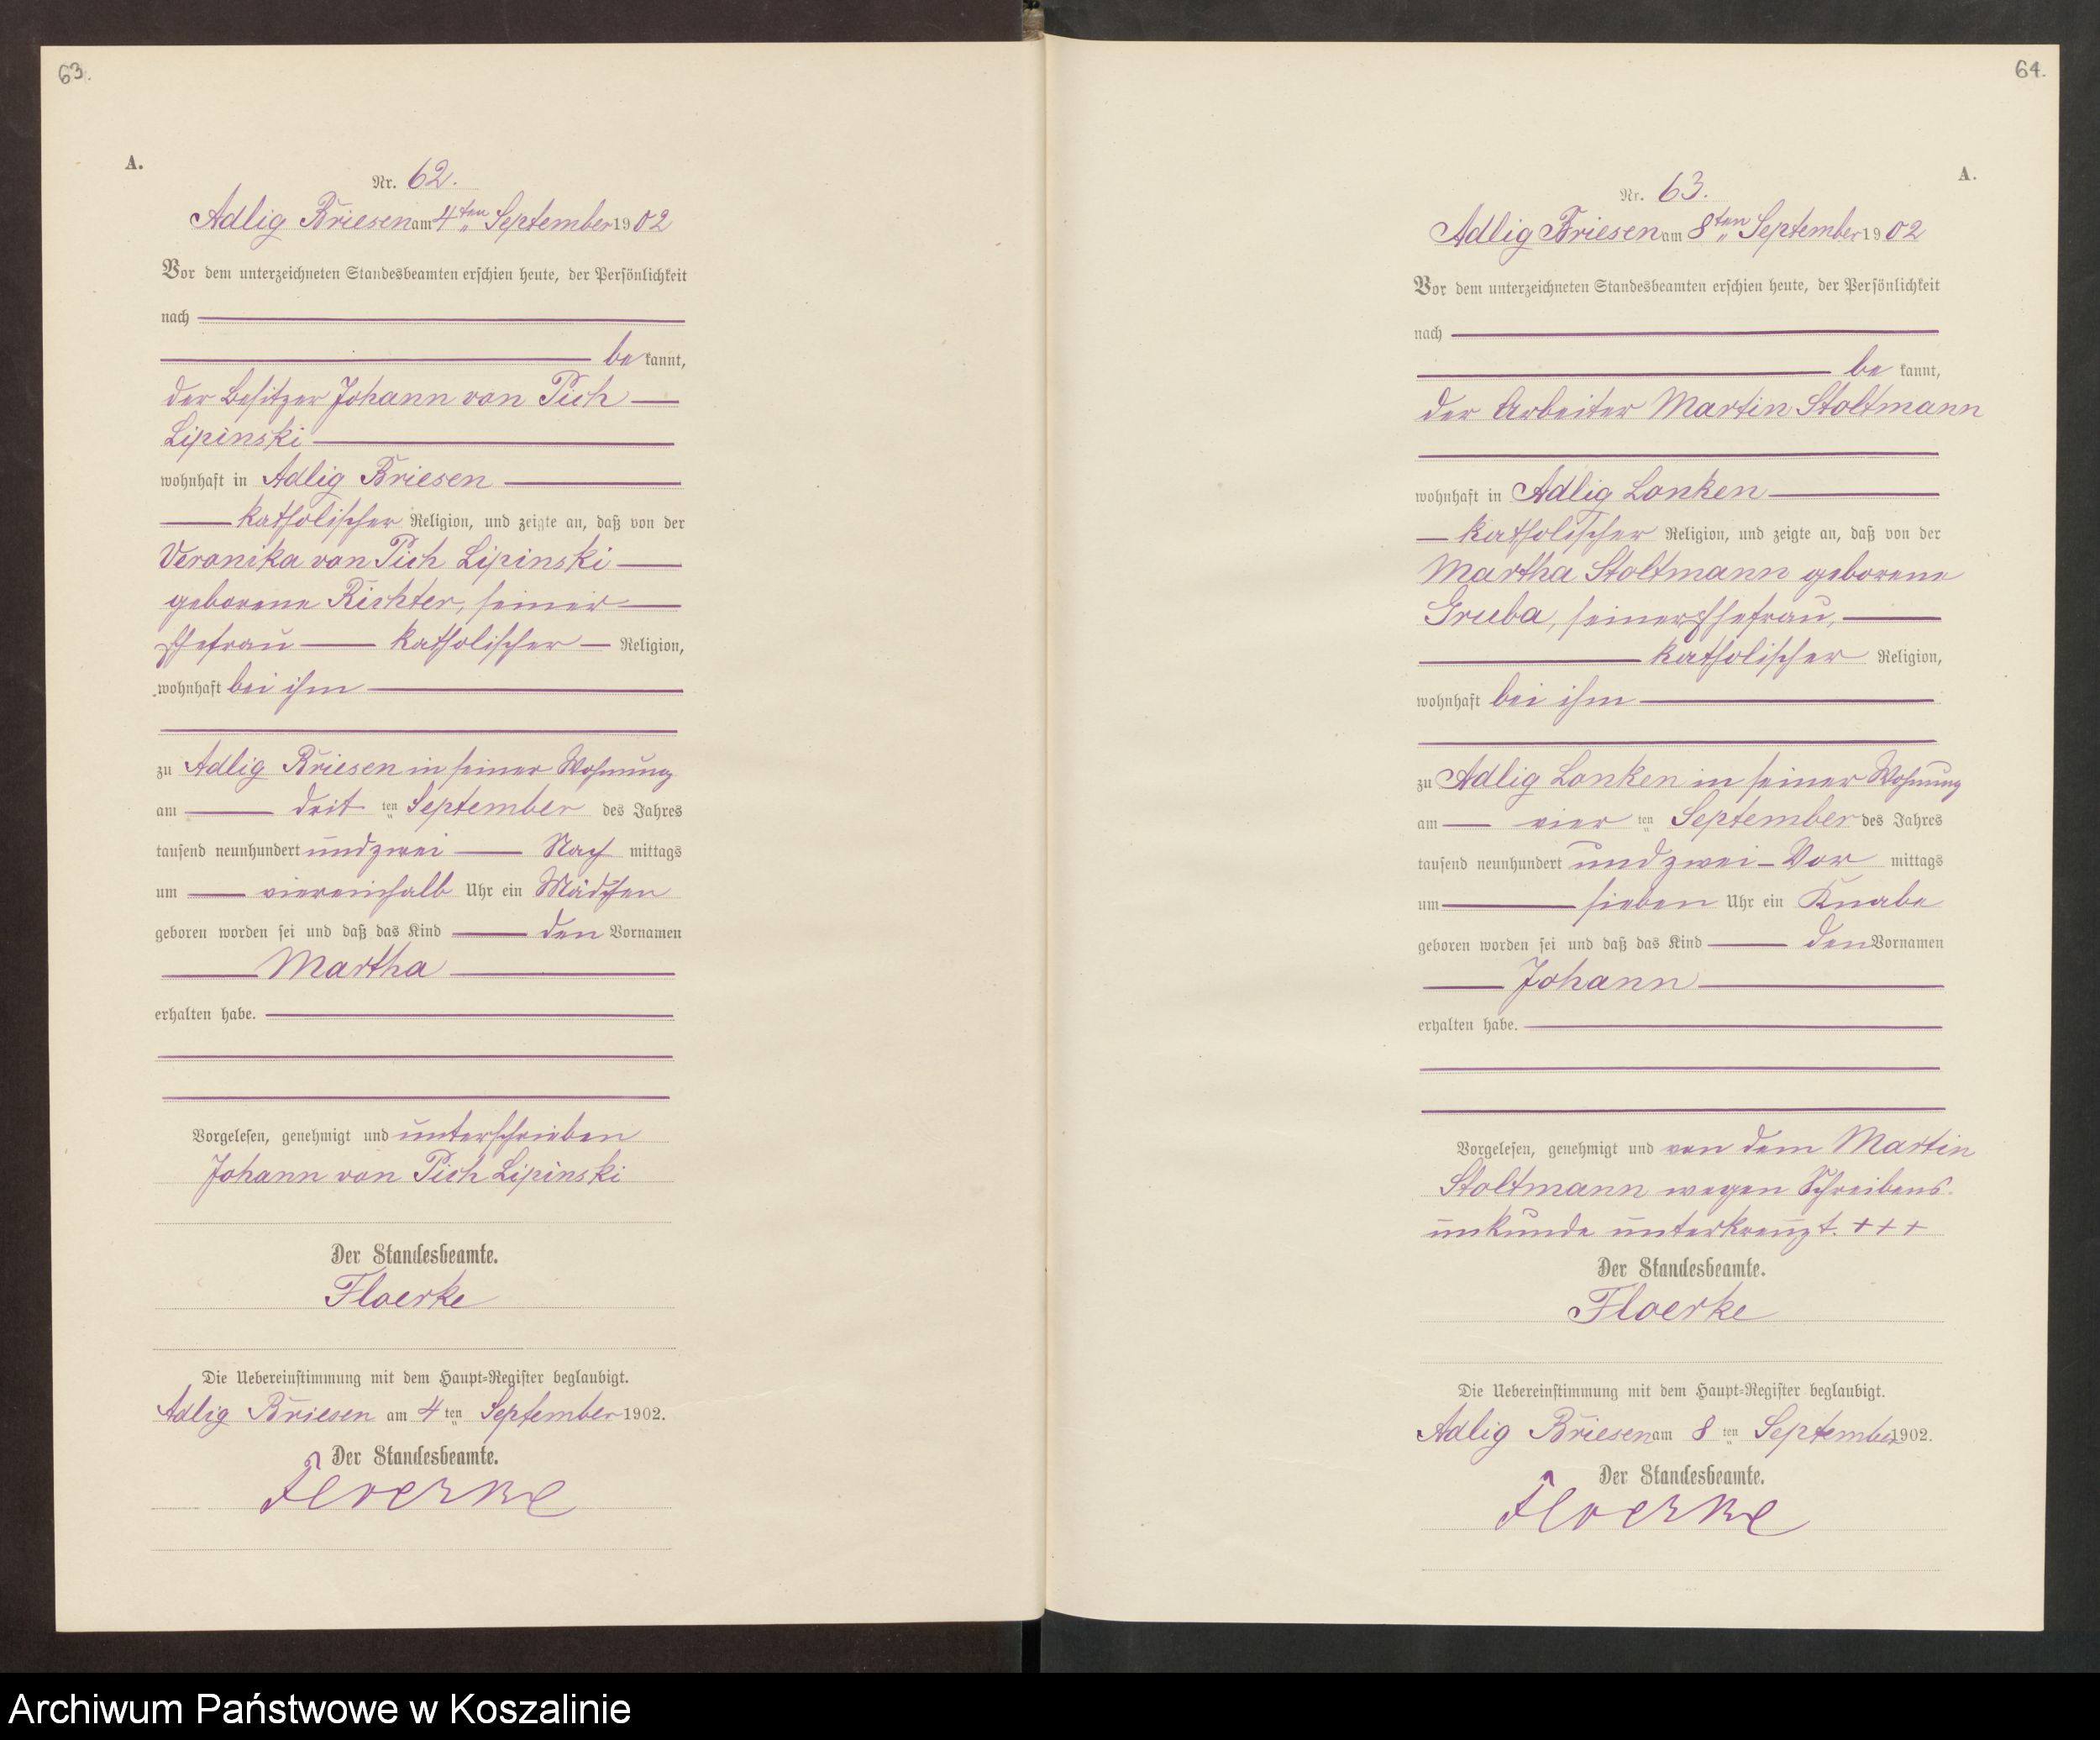 63.
A.
Nr. 62.
Adlig Briesen am 4ten September 1902
Vor dem unterzeichneten Standesbeamten erschien heute, der Persönlichkeit
nach
be kannt,
der Besitzer Johann von Pich
Lipinski
wohnhaft in Adlig Briesen
katholischer Religion, und zeigte an, daß von der
Veronika von Pich Lipinski
geborene Richter, seiner
Ehefrau katholischer Religion,
wohnhaft bei ihm
zu Adlig Briesen in seiner Wohnung
am drit ten September des Jahres
tausend neunhundert und zwei Nach mittags
um viereinhalb Uhr ein Mädchen
geboren worden sei und daß das Kind den Vornamen
Martha
erhalten habe.
Vorgelesen, genehmigt und unterschrieben
Johann von Pich Lipinski
Der Standesbeamte.
Floerke
Die Uebereinstimmung mit dem Haupt-Register beglaubigt.
Adlig Briesen am 4 ten September 1902.
Der Standesbeamte.
Floerke
64.
A.
Nr. 63.
Adlig Briesen am 8ten September 1902
Vor dem unterzeichneten Standesbeamten erschien heute, der Persönlichkeit
nach
be kannt,
der Arbeiter Martin Stoltmann
wohnhaft in Adlig Lonken
katholischer Religion, und zeigte an, daß von der
Martha Stoltmann geborene
Grueba, seiner Ehefrau,
katholischer Religion,
wohnhaft bei ihm
zu Adlig Lonken in seiner Wohnung
am vier ten September des Jahres
tausend neunhundert und zwei Vor mittags
um sieben Uhr ein Knabe
geboren worden sei und daß das Kind den Vornamen
Johann
erhalten habe.
Vorgelesen, genehmigt und von dem Martin
Stoltmann wegen Schreibens-
unkunde unterkreuzt. +++
Der Standesbeamte.
Floerke
Die Uebereinstimmung mit dem Haupt-Register beglaubigt.
Adlig Briesen am 8 ten September 1902.
Der Standesbeamte.
Floerke
Archiwum Państwowe w Koszalinie